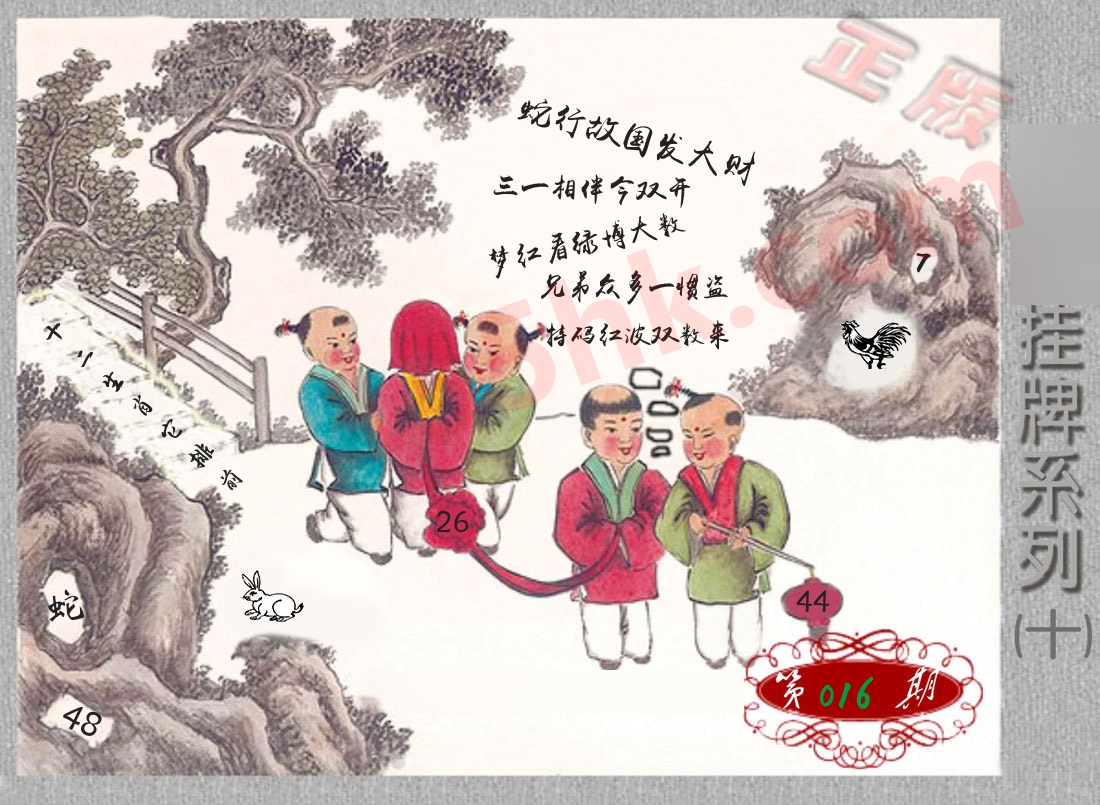 正版
蛇行故国发大财
三一相伴今双开
梦红看绿博大数
兄弟众多一惯盗
特码红波双数来
7
十二生肖它排前
26
44
蛇
48
第016期
挂牌系列(十)